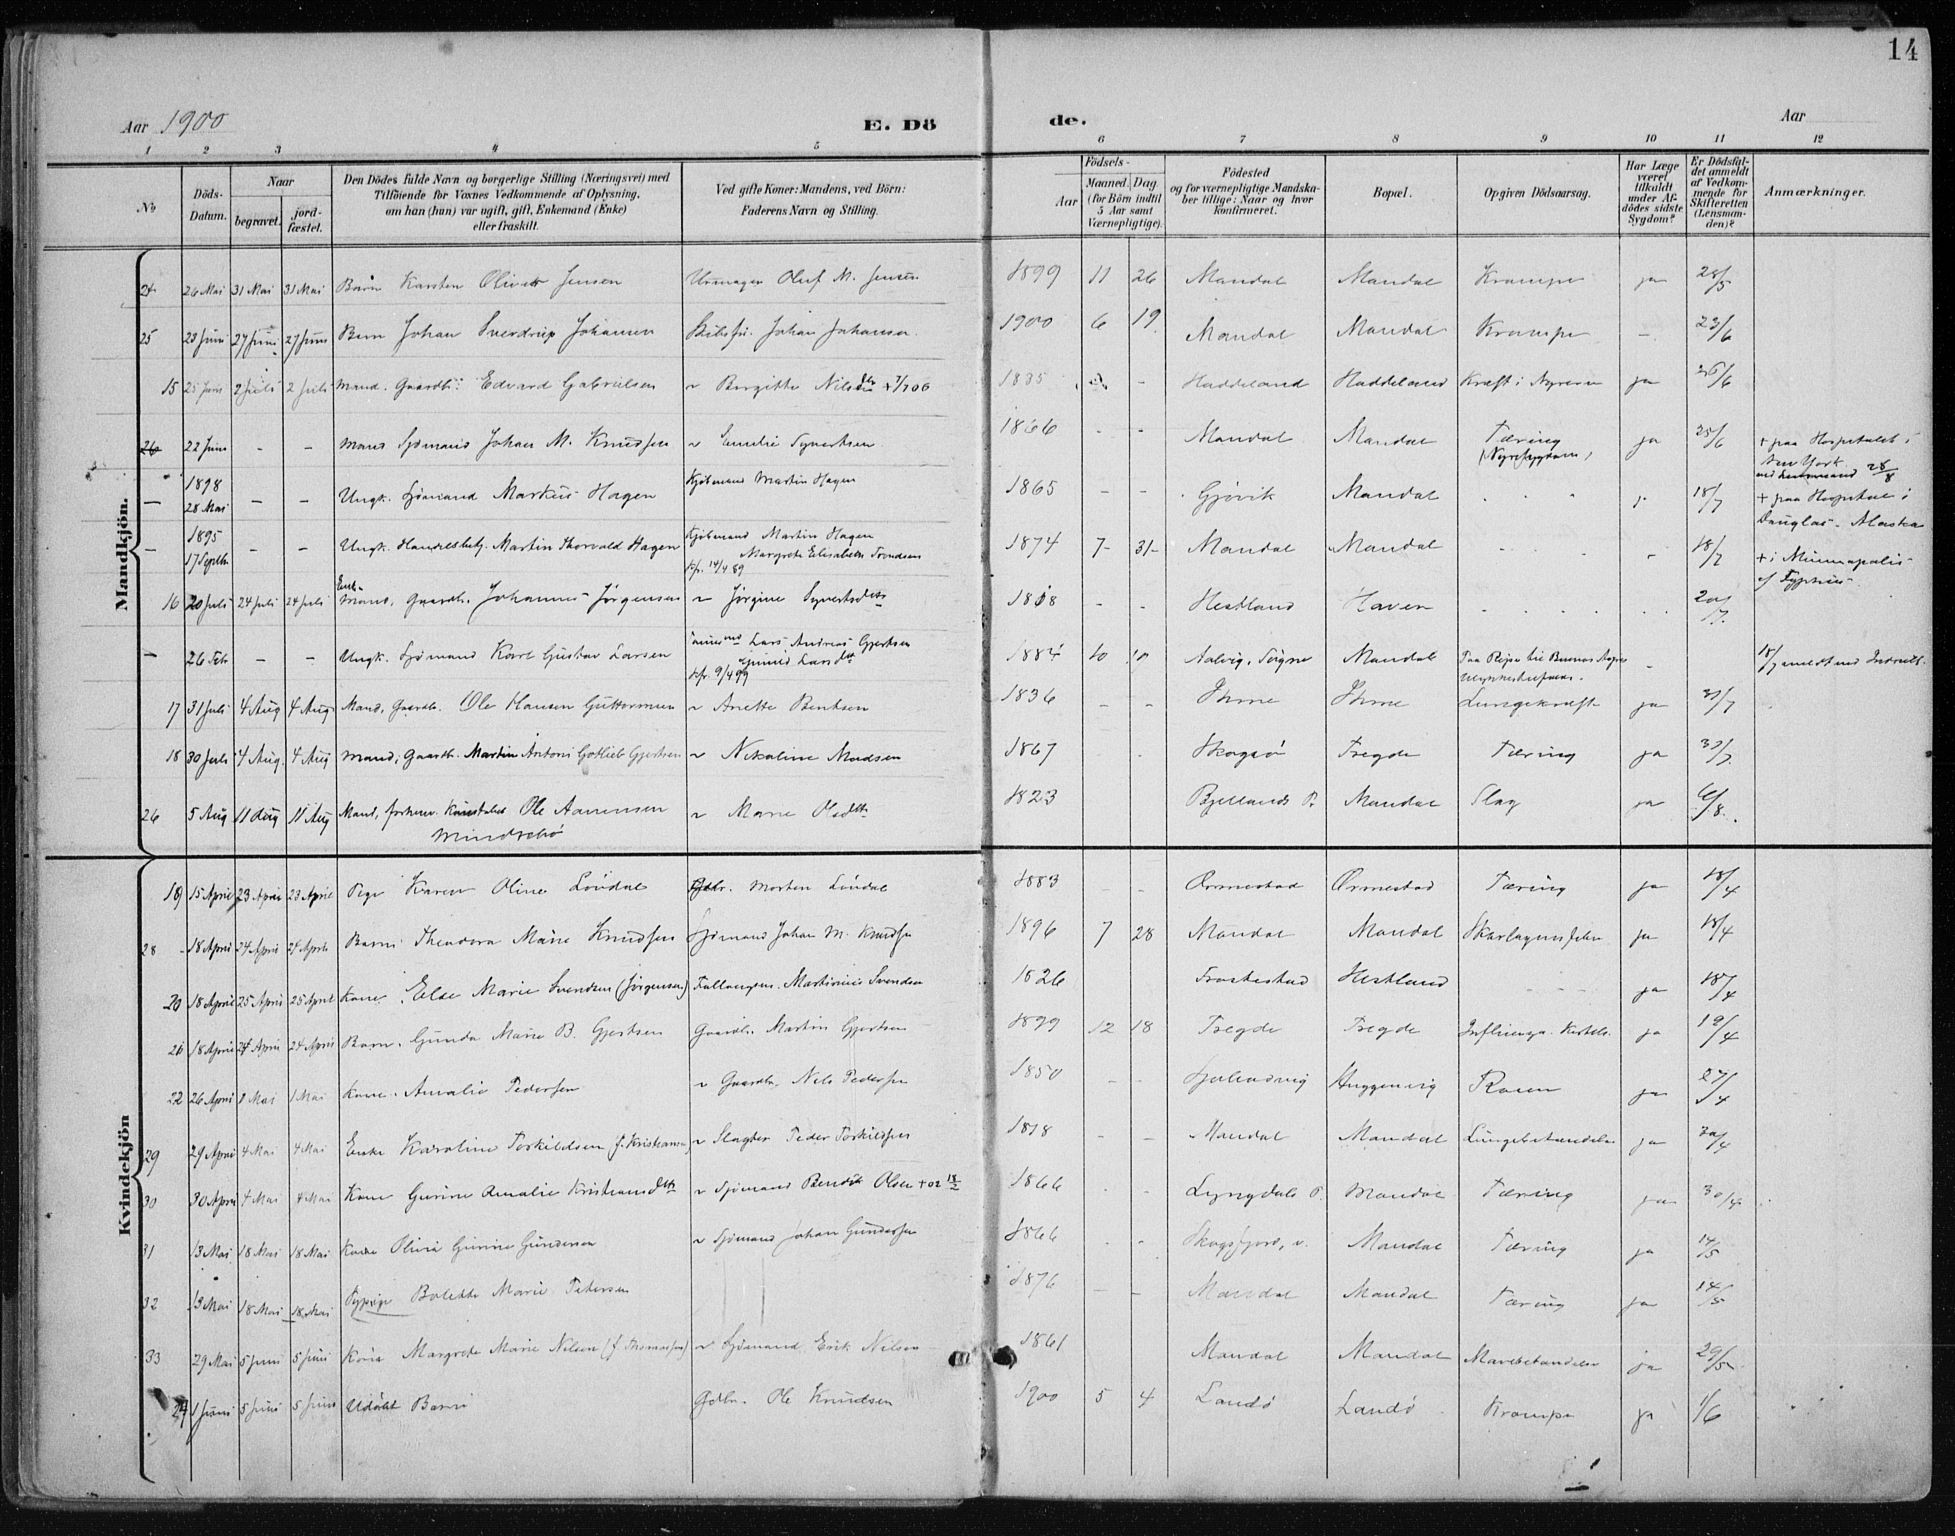 14
Aar 1900
E. Dö
de.
Aar
1 2 3 4 5 6 7 8 9 10 11 12
No
Döds-Datum.
Naar
begravet.
jord-fæstet.
Den Dödes fulde Navn og borgerlige Stilling (Næringsvei) med
Tilföiende for Voxnes Vedkommende af Oplysning,
om han (hun) var ugift, gift, Enkemand (Enke)
eller fraskilt.
Ved gifte Koner: Mandens, ved Börn:
Faderens Navn og Stilling.
Födsels-
Aar
Maaned. Dag
(for Börn indtil
5 Aar samt
Værnepligtige).
Födested
og for værnepligtige Mandska-
ber tillige: Naar og hvor
konfirmeret.
Bopæl.
Opgiven Dödsaarsag.
Har Læge
været
tilkaldt
under Af-
dödes sidste
Sygdom?
Er Dödsfal-
det anmeldt
af Vedkom-
mende for
Skifteretten
(Lensman-
den)?
Anmærkninger.
Mandkjön.
24 26 Mai 31 Mai 31 Mai Barn Karsten Oliver Jensen Urmager Oluf M. Jensen 1899 11 26 Mandal Mandal Krampe ja 28/5
25 23 Juni 27 Juni 27 Juni Barn Johan Sverdrup Johansen Johan Johansen 1900 6 19 Mandal Mandal Krampe - 23/6
15 25 Juni 2 Juli 2 Juli Mand. Gaardb. Edvard Gabrielsen ~ Birgitte Nilsdtr 1835 - Haddeland Haddeland Kræft i Nyrerne ja 26/6
26 22 Juni - - Mand Sjømand Johan M. Knudsen ~ Emilie Syvertsen 1866 - - Mandal Mandal Tæring ja 25/6 + paa Hospitalet i
(Nyresygdom) New York
- 1898 28 Mai - - Ungk. Sjømand Markus Hagen Kjøbmand Martin Hagen 1865 - - Gjøvik Mandal 18/7 + paa Hospital i
Douglas. Alaska
- 1895 17 Septbr - - Ungk. Handelsbetj. Martin Thorvald Hagen Kjøbmand Martin Hagen
Margrete Elisabeth
kfr. 14/4 89 1874 7- 31- Mandal Mandal - 18/7 + i Minneapolis
af Typhus
16 20 Juli 24 Juli 24 Juli Enke-
Mand, Gaardb. Johannes Jørgensen ~ Jørgine Syvertsdtr 1818 - - Hestland Haven 20/7
- 26 Feb - - Ungk. Sjømand Karl Gustav Larsen Lars Andreas Gjertsen
Gunild Larsdtr
kfr. 9/4 99 1884 10 10 Aalvig, Søgne Mandal Paa Rejse til Buenos Ayres - 18/7 anmeldt
17 31 Juli 4 Aug 4 Aug Mand, Gaardb. Ole Hansen Guttormsen ~ Anette Bentsen 1836 - - Ihme Ihme Lungekræft ja 31/7
18 30 Juli 4 Aug. 4 Aug Mand, Gaardb. Martin Antoni Gotlieb Gjertsen ~ Nikoline Madsen 1867 - Skogsø Tregde Tæring ja 30/7
26 5 Aug 11 Aug 11 Aug Mand, Ole Aanensen ~ Marie Olsdtr 1823 Bjellands P. Mandal Slag ja 6/8.
Mindrebø
Kvindekjön
19 15 April 23 April 23 April Pige Karen Oline Løvdal Morten Løvdal 1883 - - Ormestad Ormestad Tæring ja 18/4
28 18 April 24 April 24 April Barn Theodora Marie Knudsen Sjømand Johan M. Knudsen 1896 7 28 Mandal Mandal Skarlagensfeber ja 18/4
20 18 April 25 April 25 April Kone Else Marie Svendsen (Jørgensen) Martinius Svendsen 1826 Frøstestad Hestland ja 18/4
21 18 April 24 April 24 April Barn. Gunda Marie B. Gjertsen Gaardb. Martin Gjertsen 1899 12 18 Tregde Tregde Influenza ja 19/4
22 26 April 1 Mai 1 Mai Kone. Amalie Pedersen ~ Gaardb. Nils Pedersen 1850 - - Huggenvig Rosen ja 27/4
29 29 April 4 Mai 4 Mai Enke Karoline Torkildsen f. Kristiansen ~ Slagter Peder Torkildsen 1818 - - Mandal Mandal Lungebetændelse ja 30/4
30 30 April 4 Mai 4 Mai Kone Gurine Amalie Kristiansdtr ~ Sjømand Bendik Olsen + 02 1866 - - Lyngdals P. Mandal Tæring ja 30/4
31 13 Mai 18 Mai 18 Mai Kone Olivia Gurine Gundersen ~ Sjømand Johan Gundersen 1866 - - Skogsfjord, Mandal Tæring ja 14/5
32 13 Mai 18 Mai 18 Mai Bolette Marie Petersen 1876 - - Mandal Mandal Tæring ja 14/5
33 29 Mai 5 Juni 5 Juni Kone Margrete Marie Nilsen (f. Thomassen) ~ Sjømand Erik Nilsen 1861 Mandal Mandal Mavebetændelse ja 29/5
24 1 Juni 5 Juni 5 Juni Udøbt Barn Gdbr. Ole Knudsen 1900 5 4 Landø Landø Krampe ja 1/6